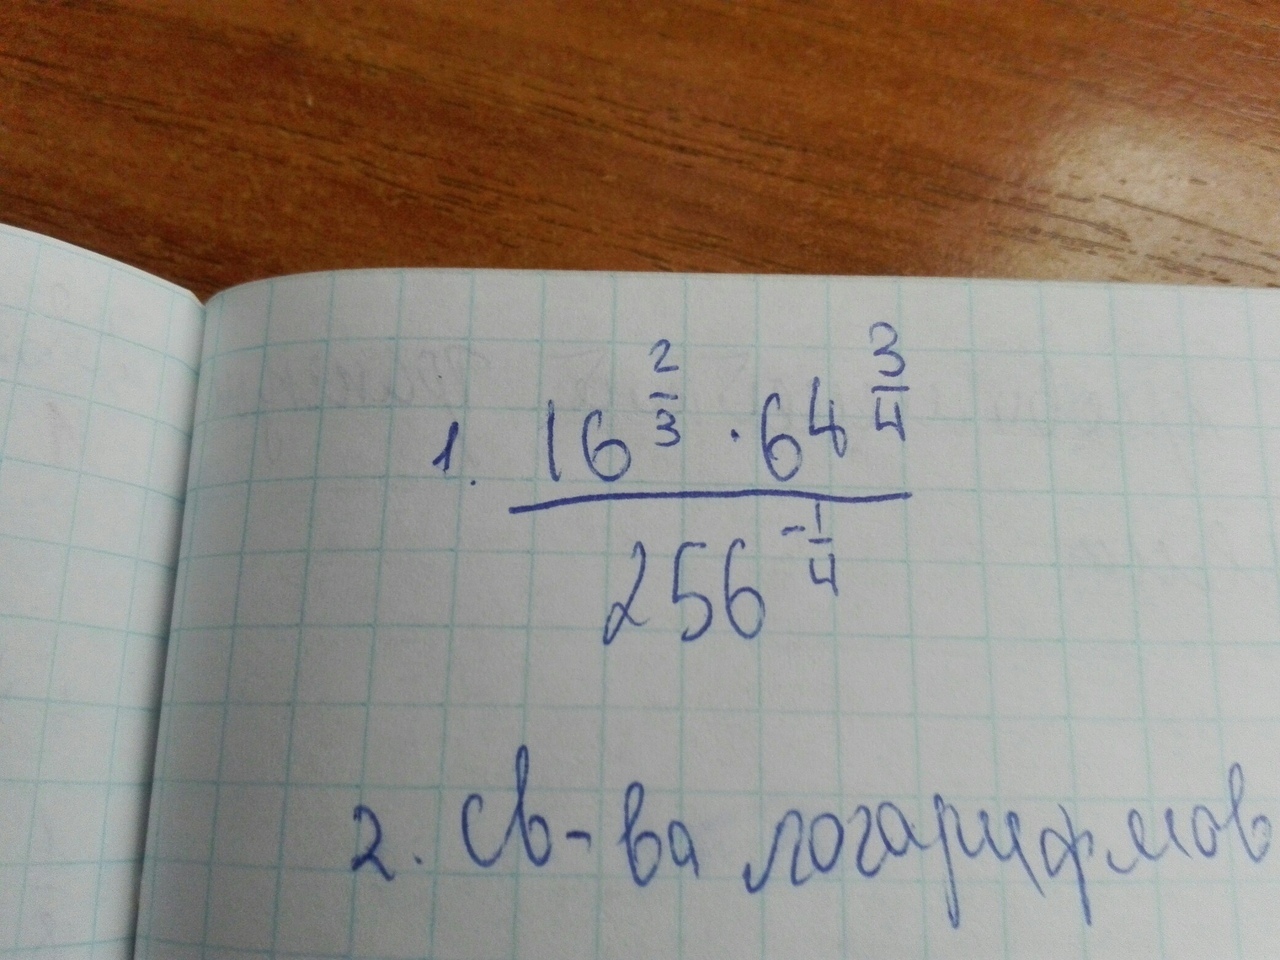 1. 16^(2/3) · 64^(3/4)
256^(-1/4)
2. Св-ва логарифмов